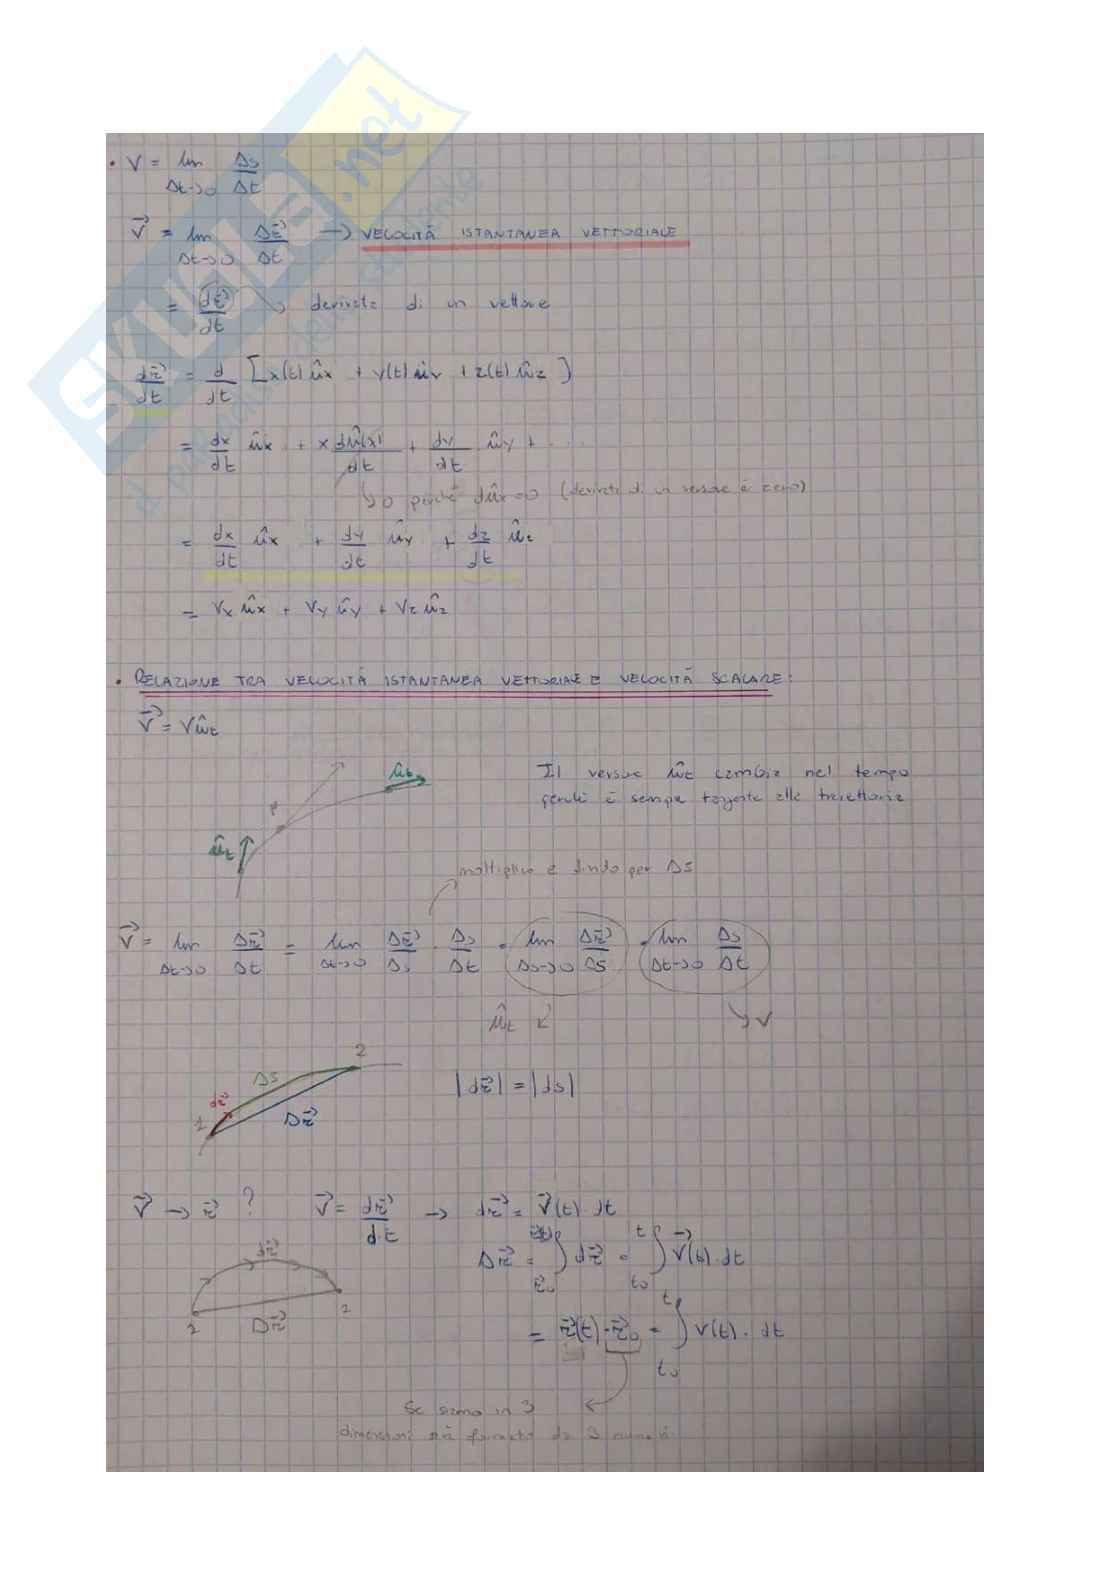 SKUOLA.net
il paradiso dello studente
• V = lim Δt→0 Δs/Δt
V⃗ = lim Δt→0 Δr⃗/Δt → VELOCITÀ ISTANTANEA VETTORIALE
= dr⃗/dt → derivata di un vettore
dr⃗/dt = d/dt [x(t) ûx + y(t) ûy + z(t) ûz]
= dx/dt ûx + x dû(x)/dt + dy/dt ûy + ...
↳ 0 perché dûx=0 (derivata di un versore è zero)
= dx/dt ûx + dy/dt ûy + dz/dt ûz
= Vx ûx + Vy ûy + Vz ûz
• RELAZIONE TRA VELOCITÀ ISTANTANEA VETTORIALE E VELOCITÀ SCALARE:
V⃗ = V ût
ût
P
ût
Il versore ût cambia nel tempo
perché è sempre tangente alla traiettoria
moltiplico e divido per ΔS
V⃗ = lim Δt→0 Δr⃗/Δt = lim Δt→0 Δr⃗/Δs · Δs/Δt = lim Δs→0 Δr⃗/ΔS · lim Δt→0 Δs/Δt
ût ↙ ↘ V
2
ΔS
dr⃗
1
Δr⃗
|dr⃗| = |ds|
V⃗ → r⃗ ? V⃗ = dr⃗/dt → dr⃗ = V⃗(t) dt
dr⃗
Δr⃗ = ∫ r⃗0 r⃗(t) dr⃗ = ∫ t0 t V⃗(t) · dt
1 Δr⃗ 2
= r⃗(t) - r⃗0 = ∫ t0 t V(t) · dt
Se siamo in 3
dimensioni sarà formato da 3 numeri